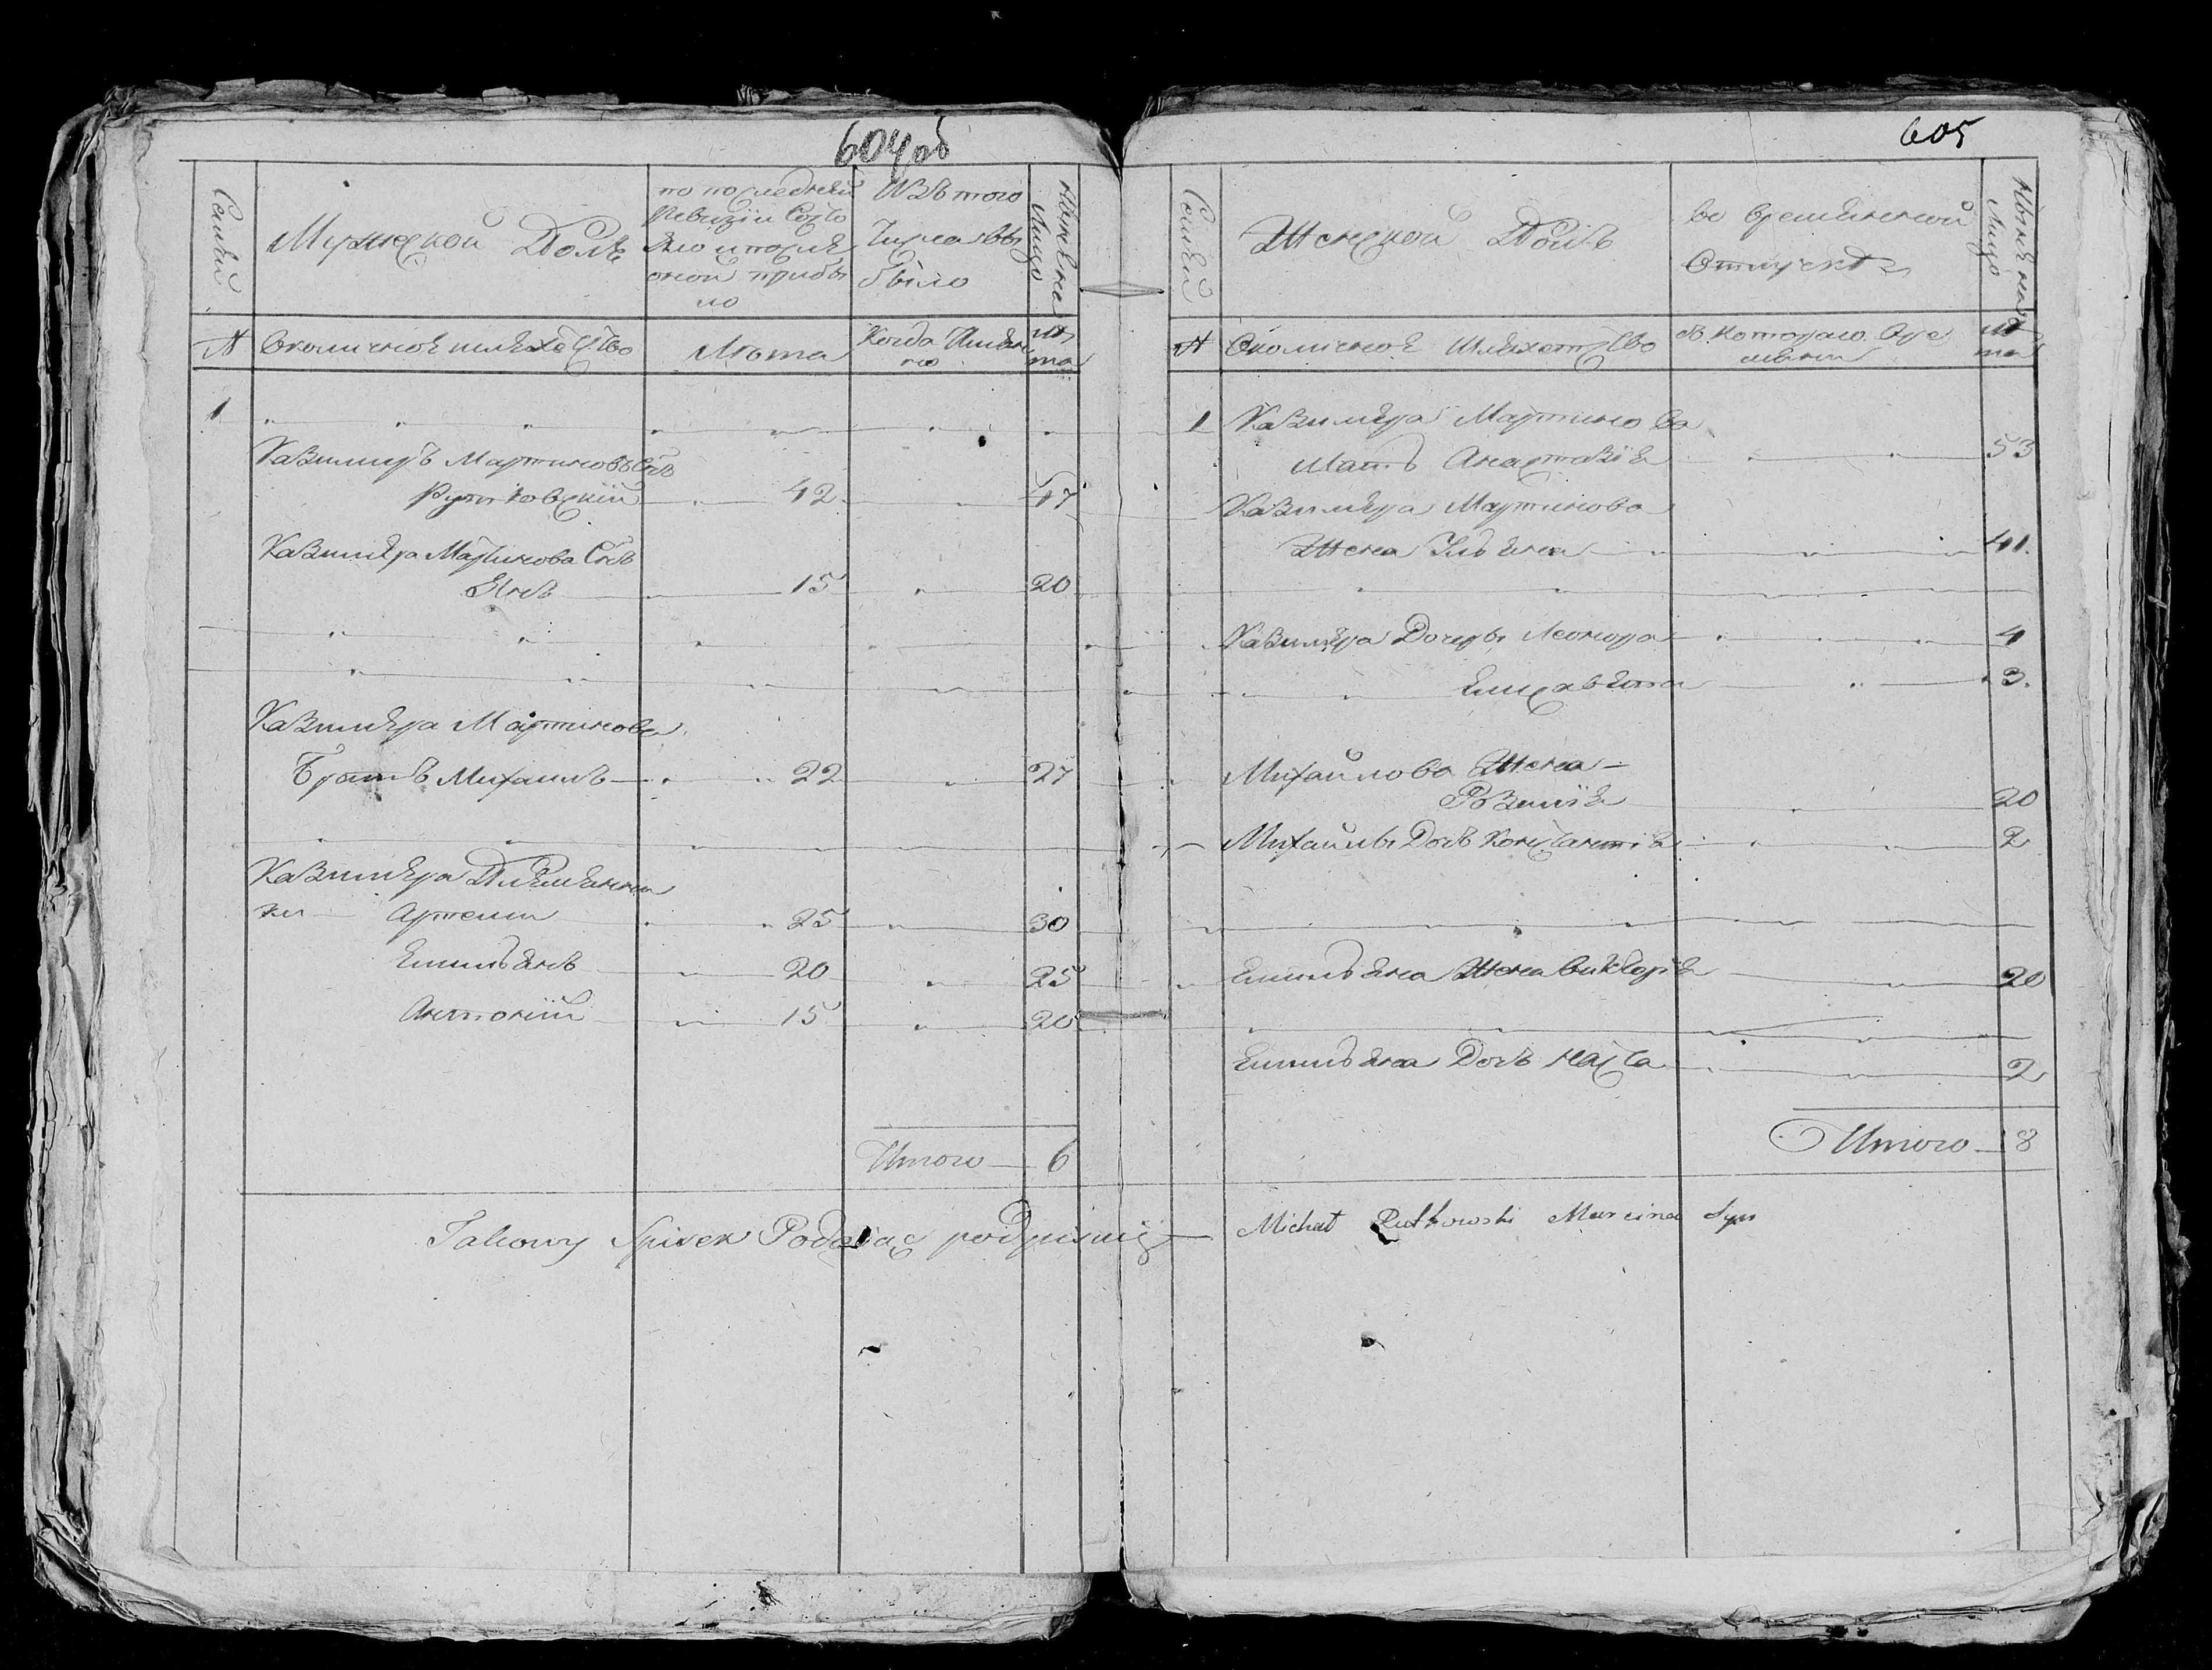 604 об
Семьи
Мужескои Полъ
по последнеи
Ревизіи Состо
яло и после
оной прибы
ло
Изъ того
Числа Вы
было
Ныне на
Лицо
№ Околичное шляхетство
Лѣта
Когда Именно
Лѣта
1
Казимиръ Мартиновъ Снъ
Рутковскій 42 47
Казимѣра Мартинова Снъ
Янъ 15 20
Казимѣра Мартинова
Братъ Михаилъ 22 27
Казимѣра Племянни
ки Артеми 25 30
Емильянъ 20 25
Антоній 15 20
Итого 6
Takowy Spisek Podaiąc podpisuię
605
Семьи
Женской Полъ
во временной
Отлучкѣ
Ныне на
Лицо
№ Околичное Шляхетство
съ Которого Вре
мени
Лѣта
1 Казимѣра Мартинова
Мать Анастазія 53
Казимѣра Мартинова
Жена Ульяна 41.
Казимѣра Дочеры Леонора 4
Елисавета 3.
Михайлова Жена
Розалія 20
Михайлы Дочъ Констанція 2
Емильяна Жена Викторія 20
Емильяна Дочъ Наста 2
Итого 8
Michał Rutkowski Marcina Syn